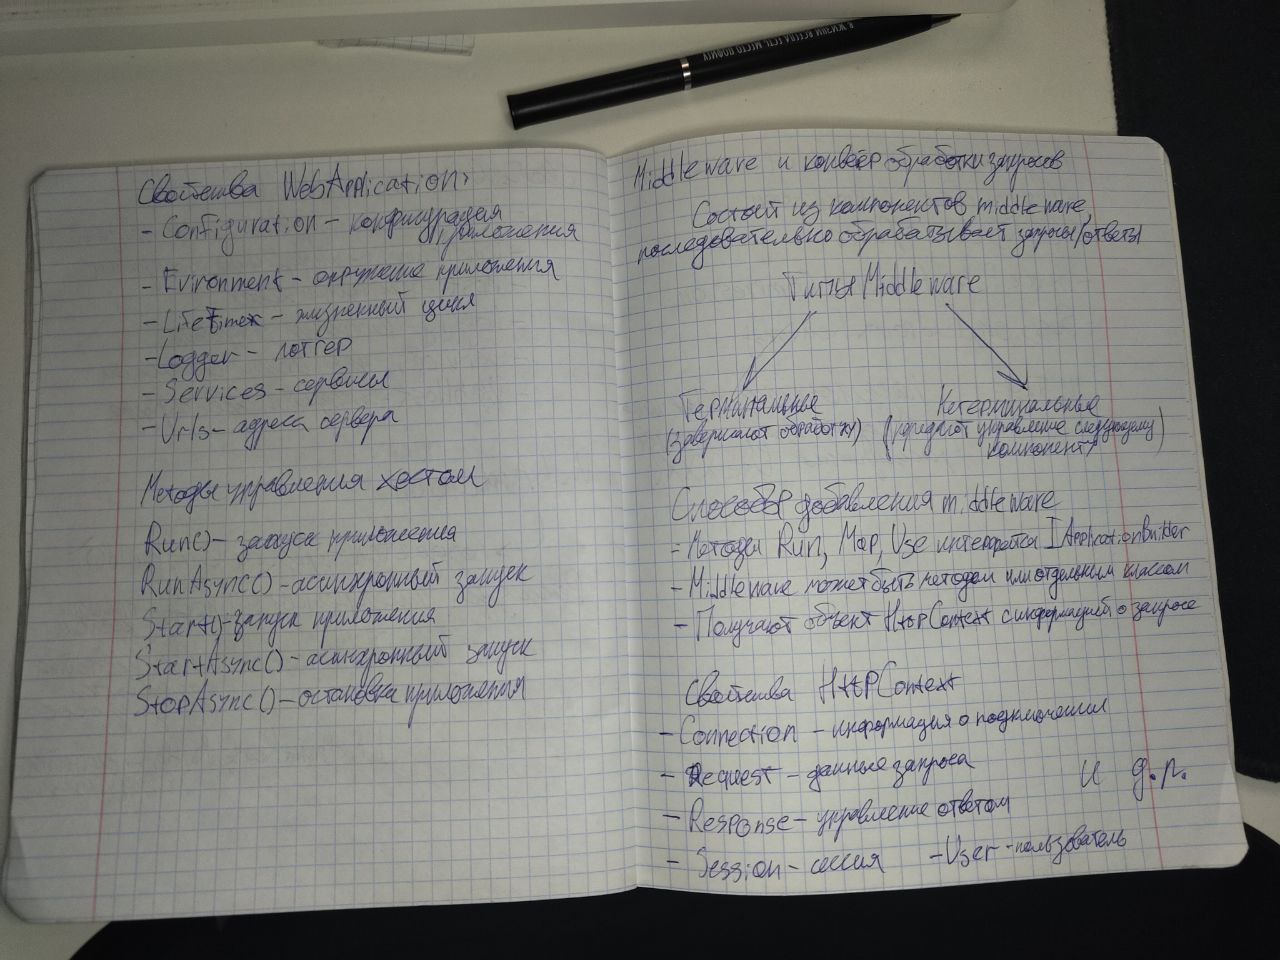 Свойства WebApplication:
- Configuration – конфигурация
приложения
- Evironment – окружение приложения
- Lifetime – жизненный цикл
- Logger – логгер
- Services – сервисы
- Urls – адреса сервера
Методы управления хостом
Run() – запуск приложения
RunAsync() – асинхронный запуск
Start() – запуск приложения
StartAsync() – асинхронный запуск
StopAsync() – остановка приложения
Middleware и конвеер обработки запросов
Состоит из компонентов middleware,
последовательно обрабатывает запросы/ответы
Типы Middleware
Терминальные
(завершают обработку)
Нетерминальные
(передают управление следующему
компоненту)
Способы добавления middleware
- Методы Run, Map, Use интерфейса IApplicationBuilder
- Middleware может быть методом или отдельным классом
- Получают объект HttpContext с информацией о запросе
Свойства HttpContext
- Connection – информация о подключении
- Request – данные запроса
и д.р.
- Response – управление ответом
- Session – сессия - User - пользователь